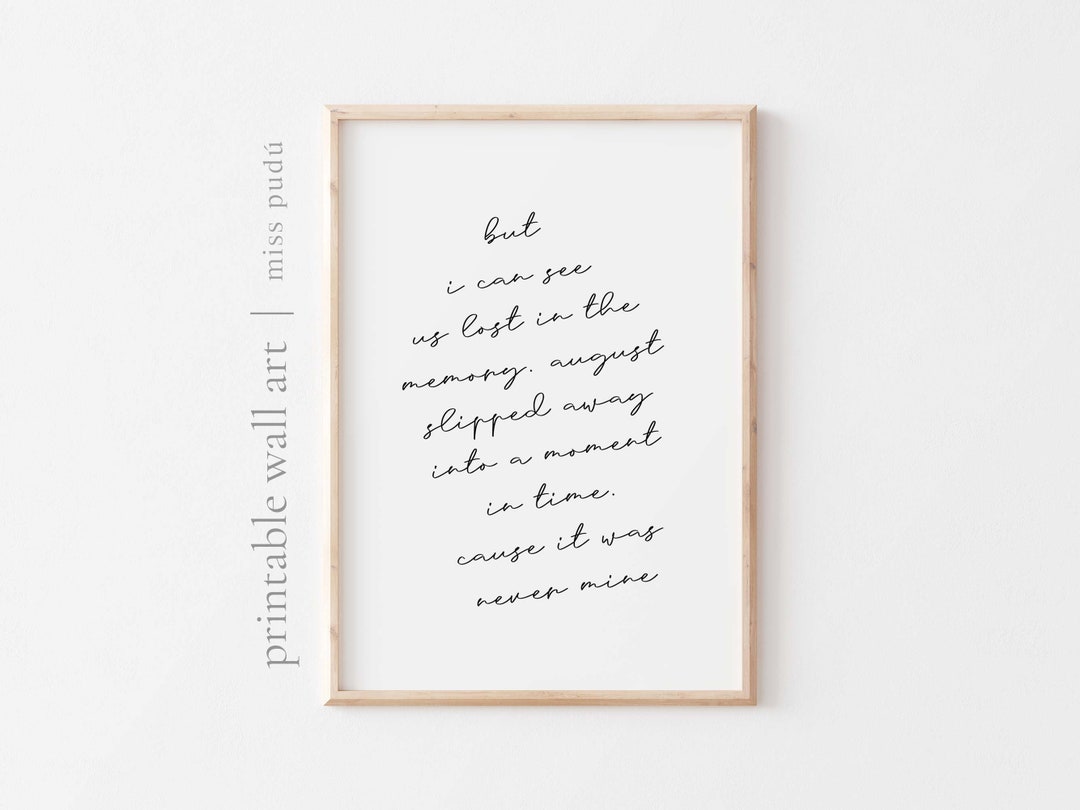 but
i can see
us lost in the
memory. august
slipped away
into a moment
in time.
cause it was
never mine
printable wall art | miss pudú